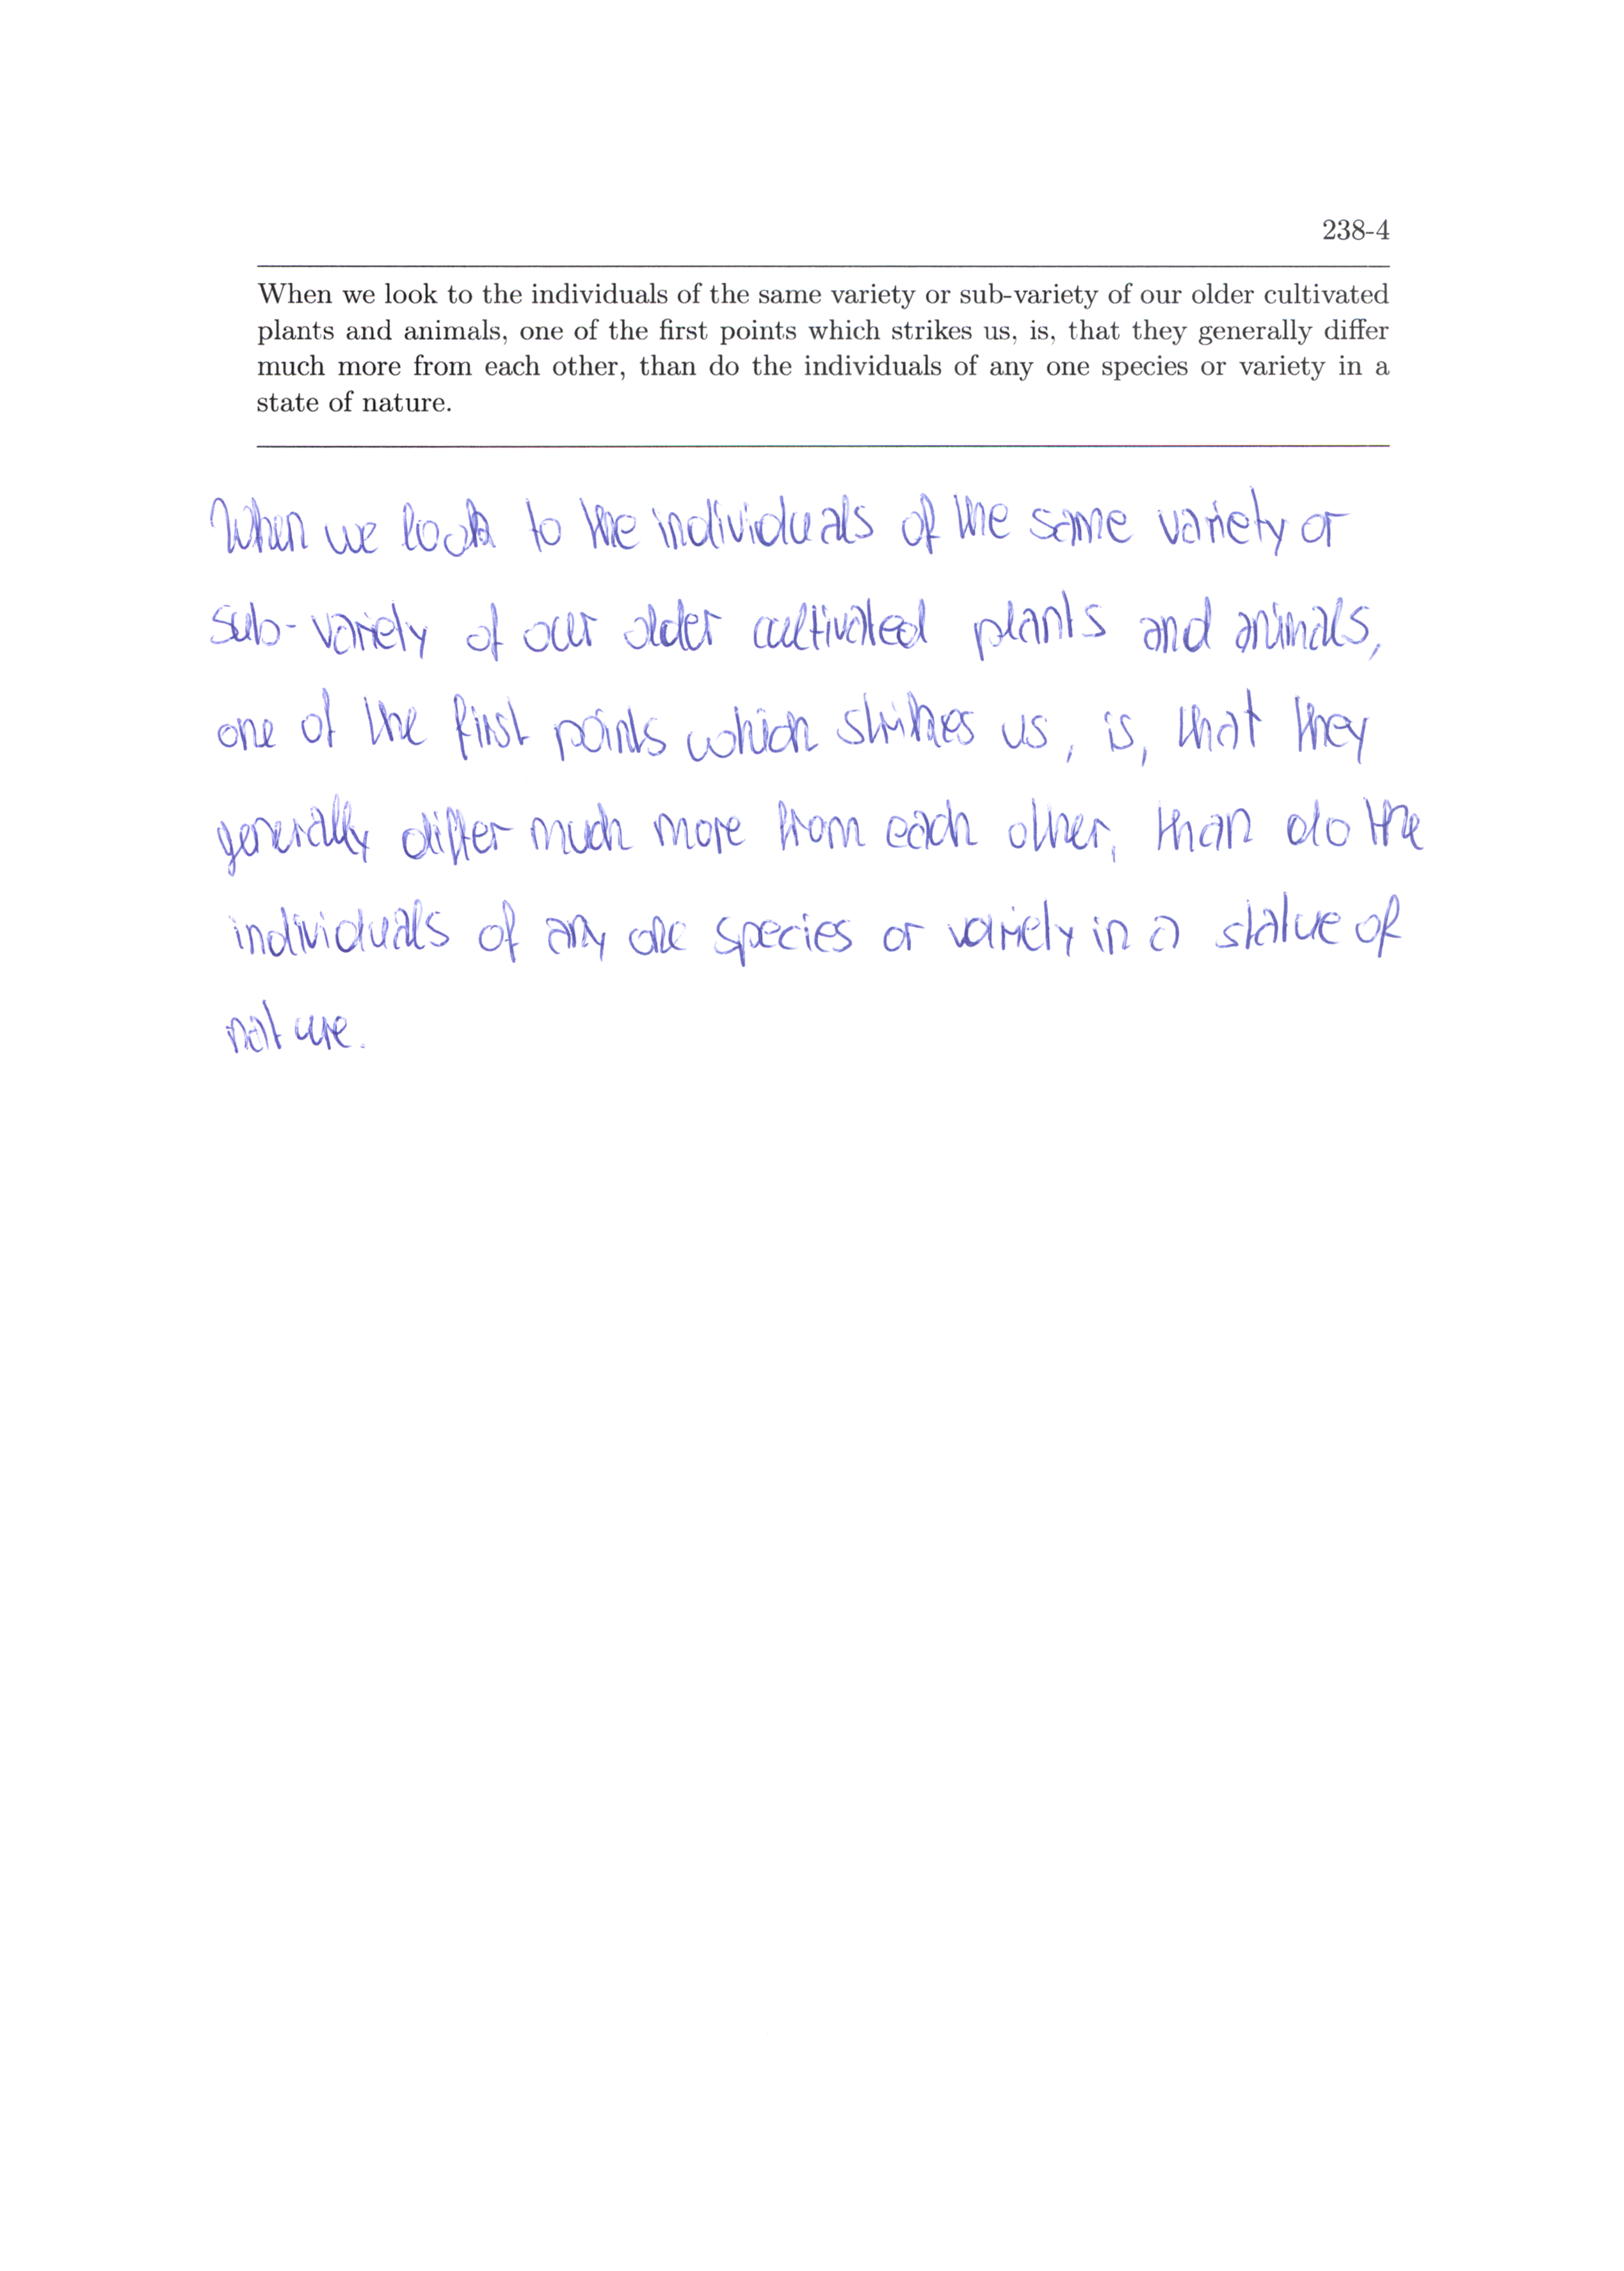 238-4
When we look to the individuals of the same variety or sub-variety of our older cultivated
plants and animals, one of the first points which strikes us, is, that they generally differ
much more from each other, than do the individuals of any one species or variety in a
state of nature.
When we look to the individuals of the same variety or
sub-variety of our older cultivated plants and animals,
one of the first points which strikes us, is, that they
generally differ much more from each other, than do the
individuals of any one species or variety in a statue of
nature.